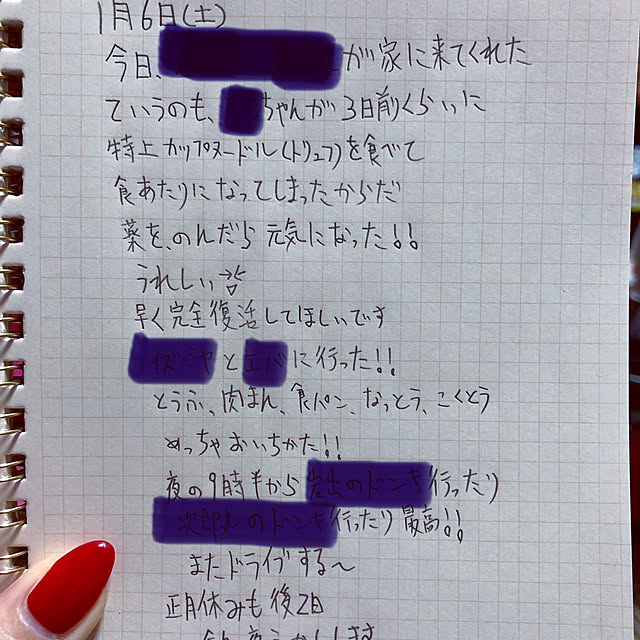 1月6日(土)
今日、 が家に来てくれた
ていうのも、 ちゃんが3日前くらいに
特上カップヌードル(トリュフ)を食べて
食あたりになってしまったからだ
薬を、のんだら元気になった!!
うれしい
早く完全復活してほしいです
イズミヤとエバに行った!!
とうふ、肉まん、食パン、なっとう、こくとう
めっちゃおいちかた!!
夜の9時半から岩出のドンキ行ったり
次郎丸のドンキ行ったり最高!!
またドライブする〜
正月休みも後2日